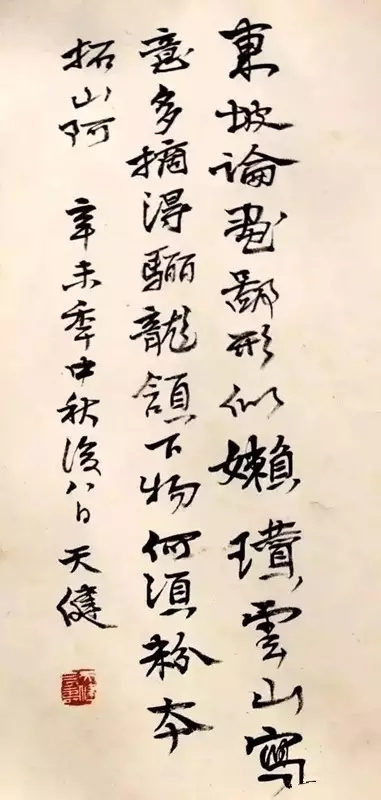 東坡論畫鄙形似嬾瓚雲山寫
意多摘得驪龍頷下物何須粉本
拓山阿 辛未季中秋後八日 天健